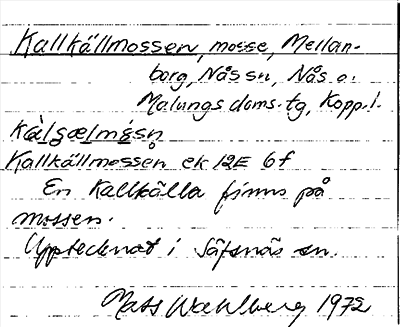 Kallkällmossen, mosse, Mellan-
borg, Nås sn, Nås o.
Malungs doms. tg, Kopp. l.
Kallkällmossen ek 12E 6f
En Kallkälla finns på
mossen.
Upptecknat i Säfsnäs sn.
Mats Wahlberg 1972